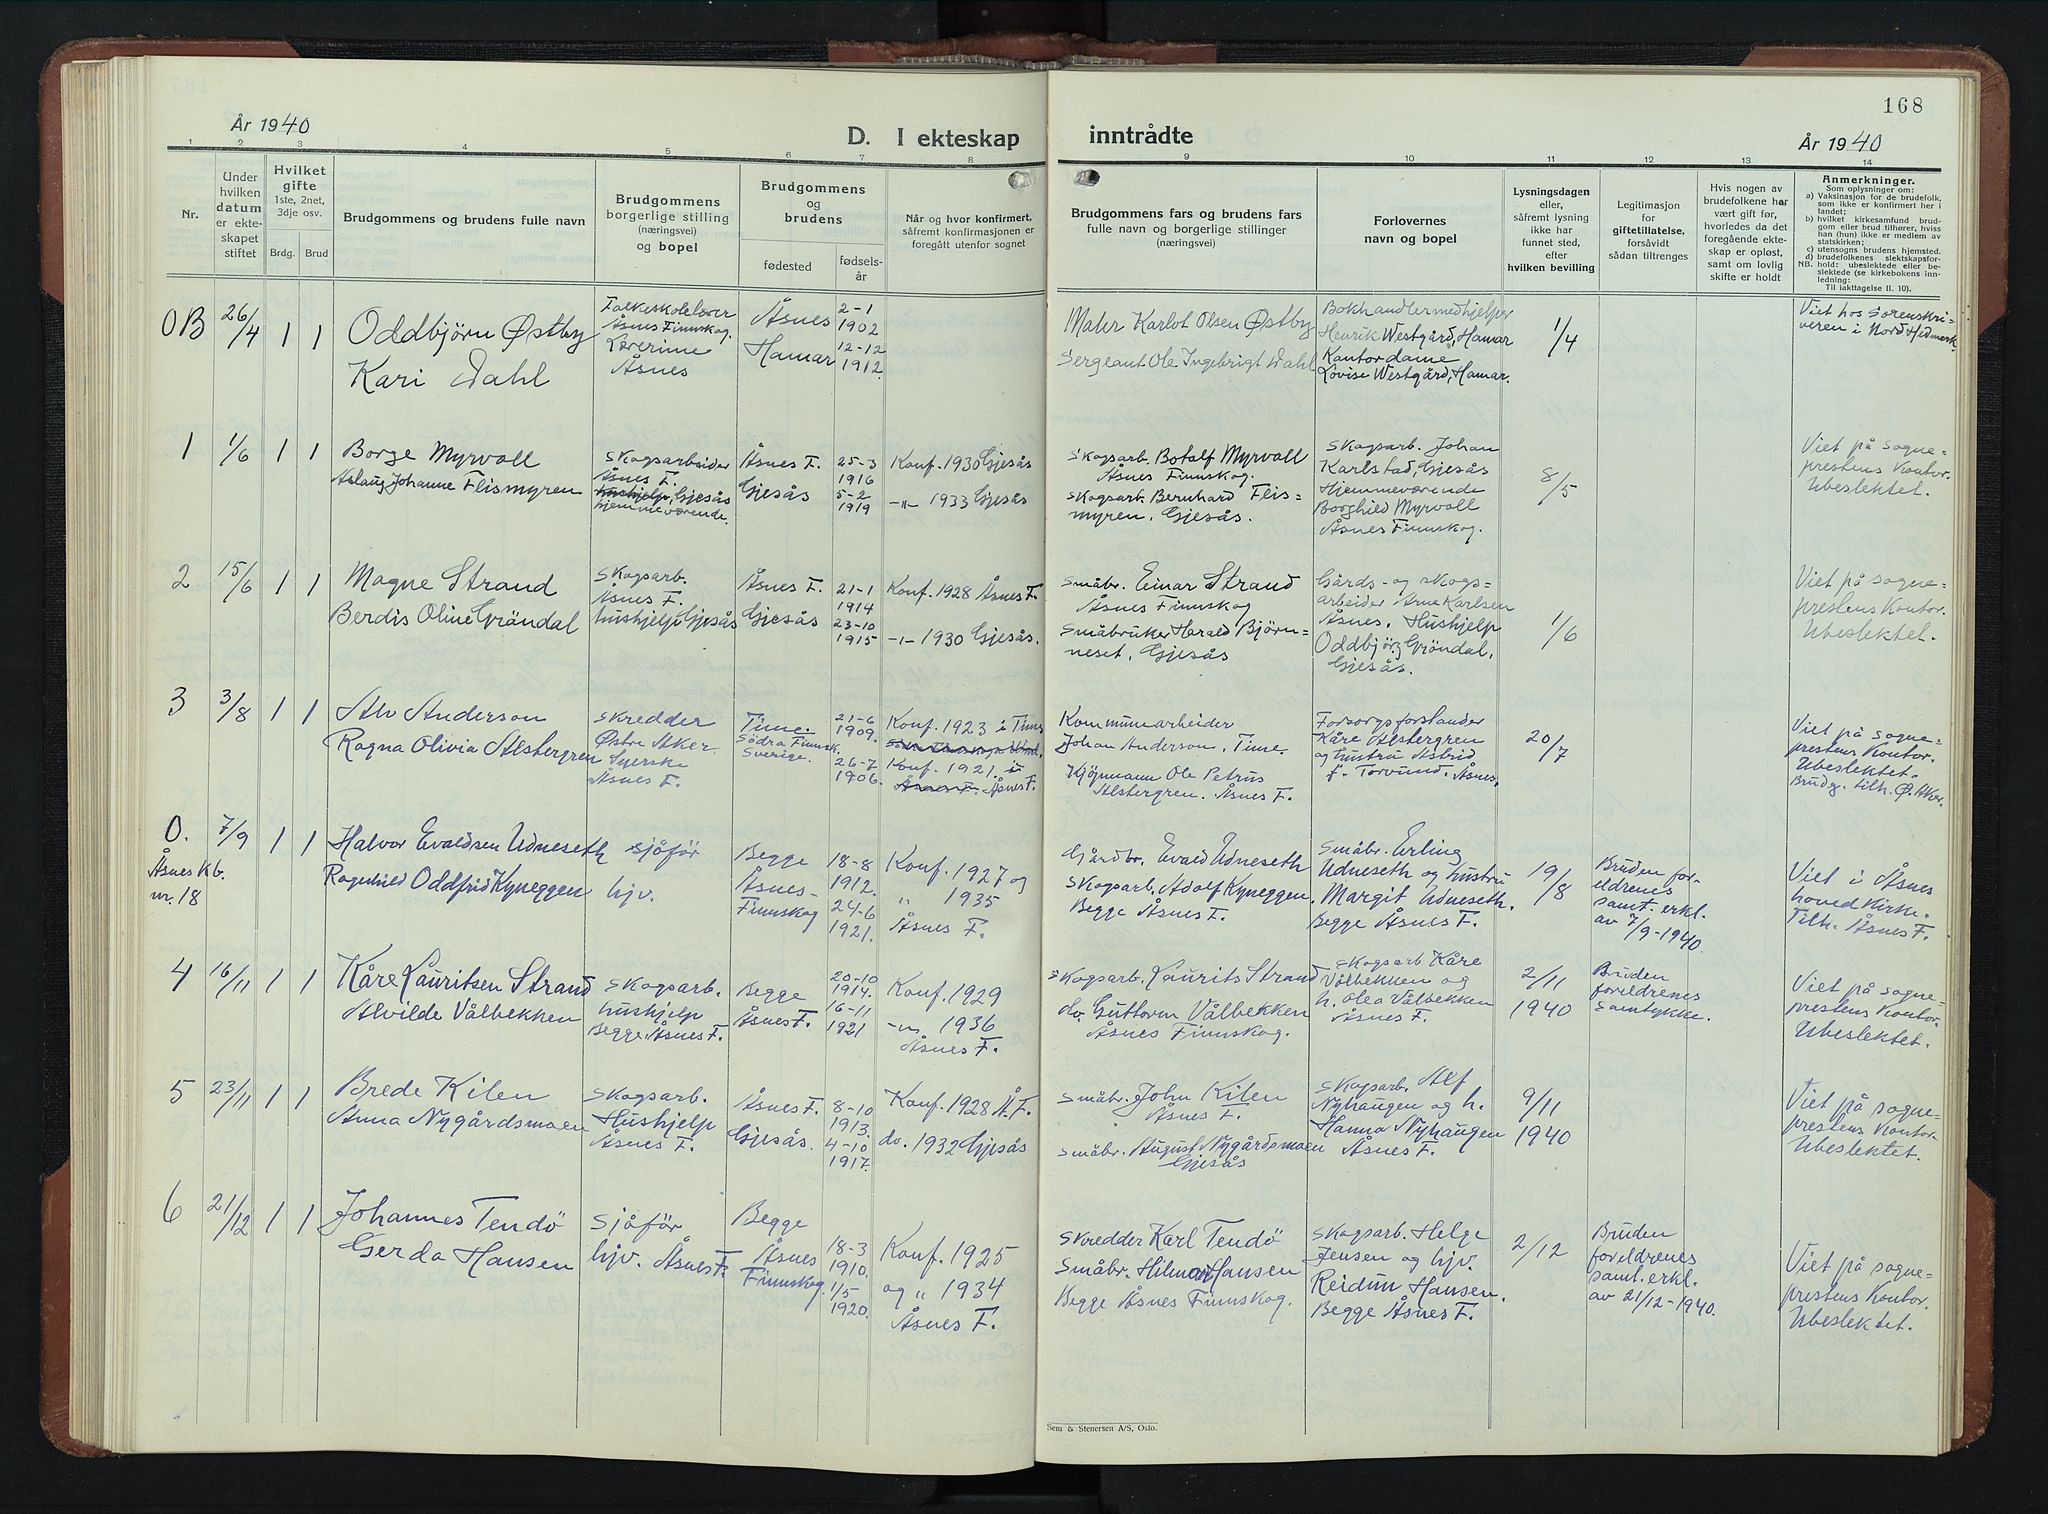 168
År 1940
D. I ekteskap inntrådte
År 1940
1 2 3 4 5 6 7 8 9 10 11 12 13 14
Nr.
Under
hvilken
datum
er ekte-
skapet
stiftet
Hvilket
gifte
1ste, 2net,
3dje osv.
Brdg. Brud
Brudgommens og brudens fulle navn
Brudgommens
borgerlige stilling
(næringsvei)
og bopel
Brudgommens
og
brudens
fødested
fødsels-
år
Når og hvor konfirmert,
såfremt konfirmasjonen er
foregått utenfor sognet
Brudgommens fars og brudens fars
fulle navn og borgerlige stillinger
(næringsvei)
Forlovernes
navn og bopel
Lysningsdagen
eller,
såfremt lysning
ikke har
funnet sted,
efter
hvilken bevilling
Legitimasjon
for
giftetillatelse,
forsåvidt
sådan tiltrenges
Hvis nogen av
brudefolkene har
vært gift før,
hvorledes da det
foregående ekte-
skap er opløst,
samt om lovlig
skifte er holdt
Anmerkninger.
Som oplysninger om:
a) Vaksinasjon for de brudefolk,
som ikke er konfirmert her i
landet;
b) hvilket kirkesamfund brud-
gom eller brud tilhører, hviss
han (hun) ikke er medlem av
statskirken;
c) utensogns brudens hjemsted.
d) brudefolkenes slektskapsfor-
NB. hold: ubeslektede eller be-
slektede (se kirkebokens inn-
ledning:
Til iakttagelse II. 10).
OB
26/4
1 1
Oddbjörn Østby
Kari Dahl
Folkeskolelærer
Åsnes Finnskog.
Lærerinne
Åsnes
Åsnes
Hamar
2-1
1902
12-12
1912.
Maler Karlot Olsen Østby
Sergeant Ole Ingebrigt Dahl
Bokhandlermedhjelper
Henrik Westgård, Hamar
Kontordame
Lovise Westgård, Hamar.
1/4
Viet hos Sorenskri-
veren i Nord Hedmark.
1
1/6
1 1
Borge Myrvoll
Aslaug Johanne Flismyren
Skogsarbeider
Åsnes F.
Hushjelp, Gjesås
hjemmeværende.
Åsnes F.
Gjesås
25-3
1916
5-2
1919
Konf. 1930 Gjesås
-"- 1933 Gjesås
Skogsarb. Botolf Myrvoll
Åsnes Finnskog.
Skogsark. Bernhard Flis=
myren, Gjesås.
Skogsarb. Johan
Karlstad, Gjesås
Hjemmeværende
Borghild Myrvoll
Åsnes Finnskog.
8/5
Viet på sogne=
prestens Kontor.
Ubeslektet.
2
15/6
1 1
Magne Strand
Berdis Oline Gröndal
Skogsarb.
Åsnes F.
hushjelp Gjesås
Åsnes F.
Gjesås
21-1
1914
23-10
1915
Konf. 1928 Åsnes F.
-"- 1930 Gjesås.
Småbr. Einar Strand
Åsnes Finnskog
Småbruker Harald Björn=
neset, Gjesås
Gårds- og skogs=
arbeider Arne Karlsen
Åsnes, Hushjelp
Oddbjörg Gröndal,
Gjesås.
1/6
Viet på sogne=
prestens Kontor.
Ubeslektet.
3
3/8
1 1
Alv Anderson
Ragna Olivia Alstergren
Skredder
Østre Aker.
Syerske
Åsnes F.
Time.
Södra Finnsk.
Sverige.
21-6
1909.
26-7
1906.
Konf. 1923 i Time
Konf. 1921. i
Åsnes F. Åsnes F.
Kommunearbeider
Johan Anderson, Time.
Kjöpmann Ole Petrus
Alstergren. Åsnes F.
Forsorgsforstander
Kåre Alstergren
og hustru Astrid
f. Torvund. Åsnes,
20/7
Viet på sogne=
prestens Kontor.
Ubeslektet.
Brudg. tilh. Ø. Aker.
O.
Åsnes Kb.
nr. 18
7/9
1 1
Halvor Evaldsen Udneseth
Ragnhild Oddfrid Kyneggen
Sjåför
hjv.
Begge
Åsnes-
Finnskog
18-8
1912.
24-6
1921.
Konf. 1927 og
" 1935
Åsnes F.
Gårdbr. Evald Udneseth
Skogsarb. Adolf Kyneggen,
Begge Åsnes F.
Småbr. Erling
Udneseth og hustru
Margit Udneseth.
Begge Åsnes F.
19/8
Bruden for-
eldrenes
samt. erkl.
av 7/9-1940.
Viet i Åsnes
hovedkirke.
Tilh. Åsnes F.
4
16/11
1 1
Kåre Lauritsen Strand
Alvilde Vålbekken
Skogsarb.
hushjelp
Begge Åsnes F.
Begge
Åsnes F.
20-10
1914.
16-11
1921
Konf. 1929
-"- 1936
Åsnes F.
Skogsarb. Laurits Strand
do. Guttorm Vålbekken
Åsnes Finnskog.
Skogsarb Kåre
Vålbekken og
h. Olea Vålbekken
Åsnes F.
2/11
1940
Bruden
foreldrenes
samtykke.
Viet på sogne=
prestens Kontor.
Ubeslektet.
5
23/11
1 1
Brede Kilen
Anna Nygårdsmoen
Skogsarb.
Hushjelp
Åsnes F.
Åsnes F.
Gjesås.
8-10
1913.
4-10
1917.
Konf. 1928 Å.F.
do. 1932 Gjesås
Småbr. John Kilen
Åsnes F.
Småbr. August Nygårdsmoen
Gjesås
Skogsarb. Alf
Nyhaugen og h.
Hanna Nyhaugen
Åsnes F.
9/11
1940
Viet på sogne=
prestens Kontor.
Ubeslektet.
6
21/12
1 1
Johannes Tendö
Gerda Hansen
Sjåför
hjv. Åsnes F.
Begge
Åsnes
Finnskog
18-3
1910.
1/5
1920.
Konf. 1925
og " 1934
Åsnes F.
Skredder Karl Tendö
Småbr. Hilmar Hansen
Begge Åsnes Finnskog.
Skogsarb. Helge
Jensen og hjv.
Reidun Hansen.
Begge Åsnes F.
2/12
Bruden
foreldrenes
samt. erkl.
av 21/12-1940.
Viet på sogne=
prestens Kontor.
Ubeslektet.
Sem & Stenersen A/S, Oslo.